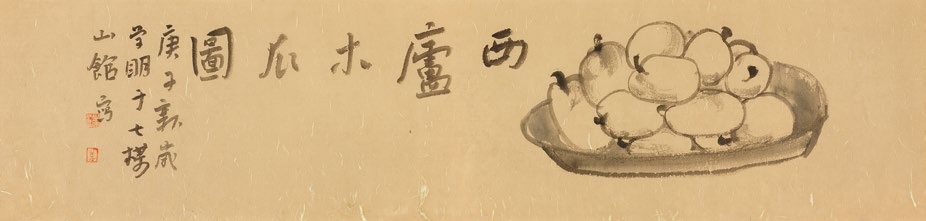 西廬木瓜圖
庚子新歲
学明于七樸
山館寫